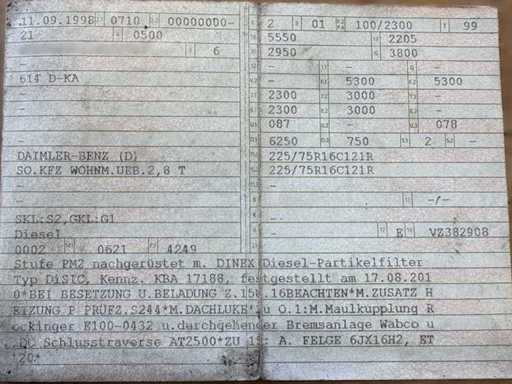 11.09.1998 0710 00000000-
21 0500
- 6
-
614 D-KA
-
-
-
-
DAIMLER-BENZ (D)
SO.KFZ WOHNM.UEB.2,8 T
-
-
SKL:S2,GKL:G1
Diesel
0002 0621 4249
2 01 100/2300 99
5550 2205
2950 3800
- - -
- 5300 5300
2300 3000 -
2300 3000 -
087 - 078
6250 750 2 -
225/75R16C121R
225/75R16C121R
-
-
- -/-
-
- E VZ382908
Stufe PM2 nachgerüstet m. DINEX Diesel-Partikelfilter
Typ DiSiC, Kennz. KBA 17188, festgestellt am 17.08.201
0*BEI BESETZUNG U.BELADUNG Z.15U.16BEACHTEN*M.ZUSATZ H
EIZUNG P PRÜFZ.S244*M.DACHLUKE*zu O.1:M.Maulkupplung R
ockinger E100-0432 u.durchgehender Bremsanlage Wabco u
Schlusstraverse AT2500*ZU 15: A. FELGE 6JX16H2, ET
20*